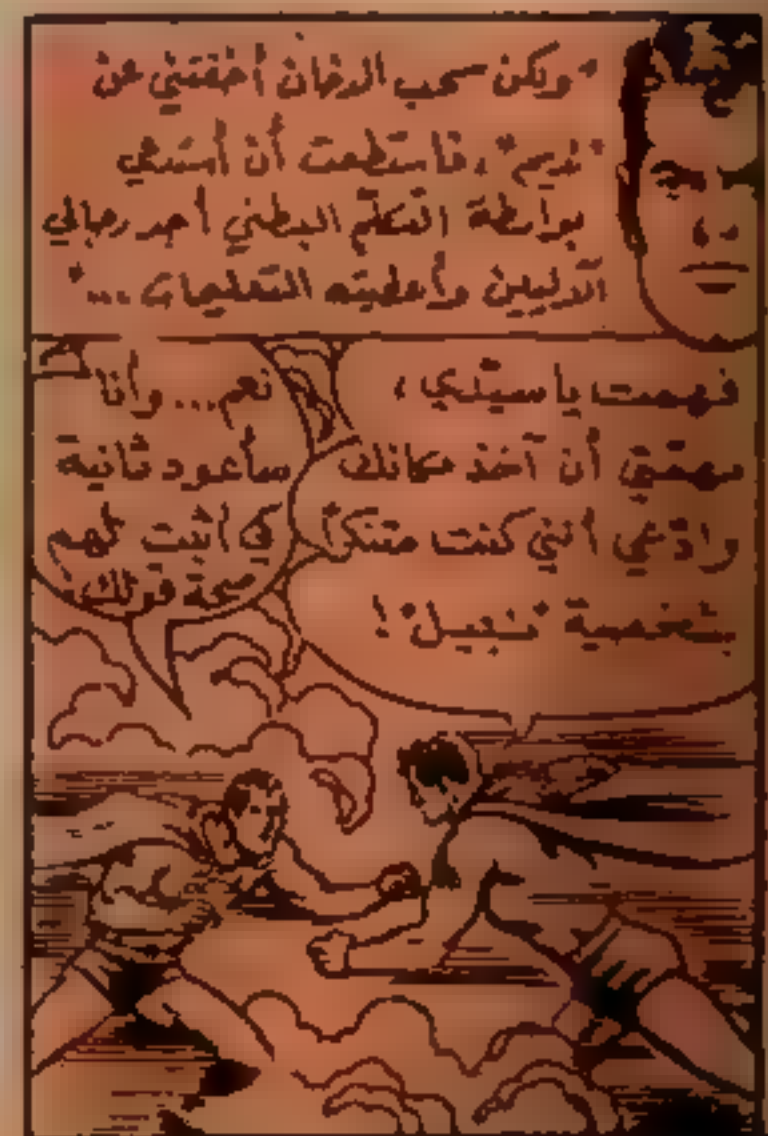 "ولكن سحب الدخان أخفتني عن
"نديم"، فاستطعت أن أستدعي
بواسطة التكلم البطني أحد رجالي
الآليين وأعطيته التعليمات ..."
فهمت يا سيدي،
مهمتي أن آخذ مكانك
وادعي أنني كنت متنكراً
بشخصية "نبيل"!
نعم... وأنا
سأعود ثانية
كي أثبت لهم
صحة قولك